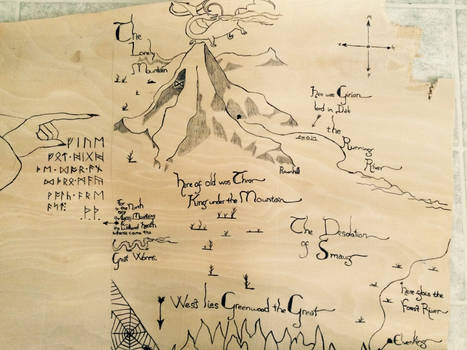 The
Lonely
Mountain
Here was Girion
lord in Dale
the
Running
River
Ravenhill
ᚠᛁᚢᛖ
Here of old was
King under the Mountain
Far
to the North
Grey Mountains
Withered Heath
whence came the
Great Worms
The Desolation
of Smaug
West lies Greenwood the Great
Here flows the
Forest River